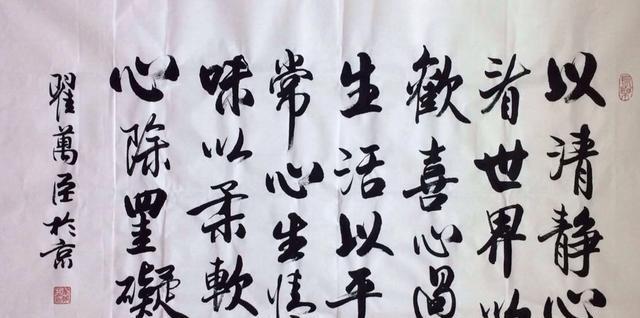 以清静心
看世界以
歡喜心過
生活以平
常心生情
味以柔軟
心除罣礙
翟萬臣於京